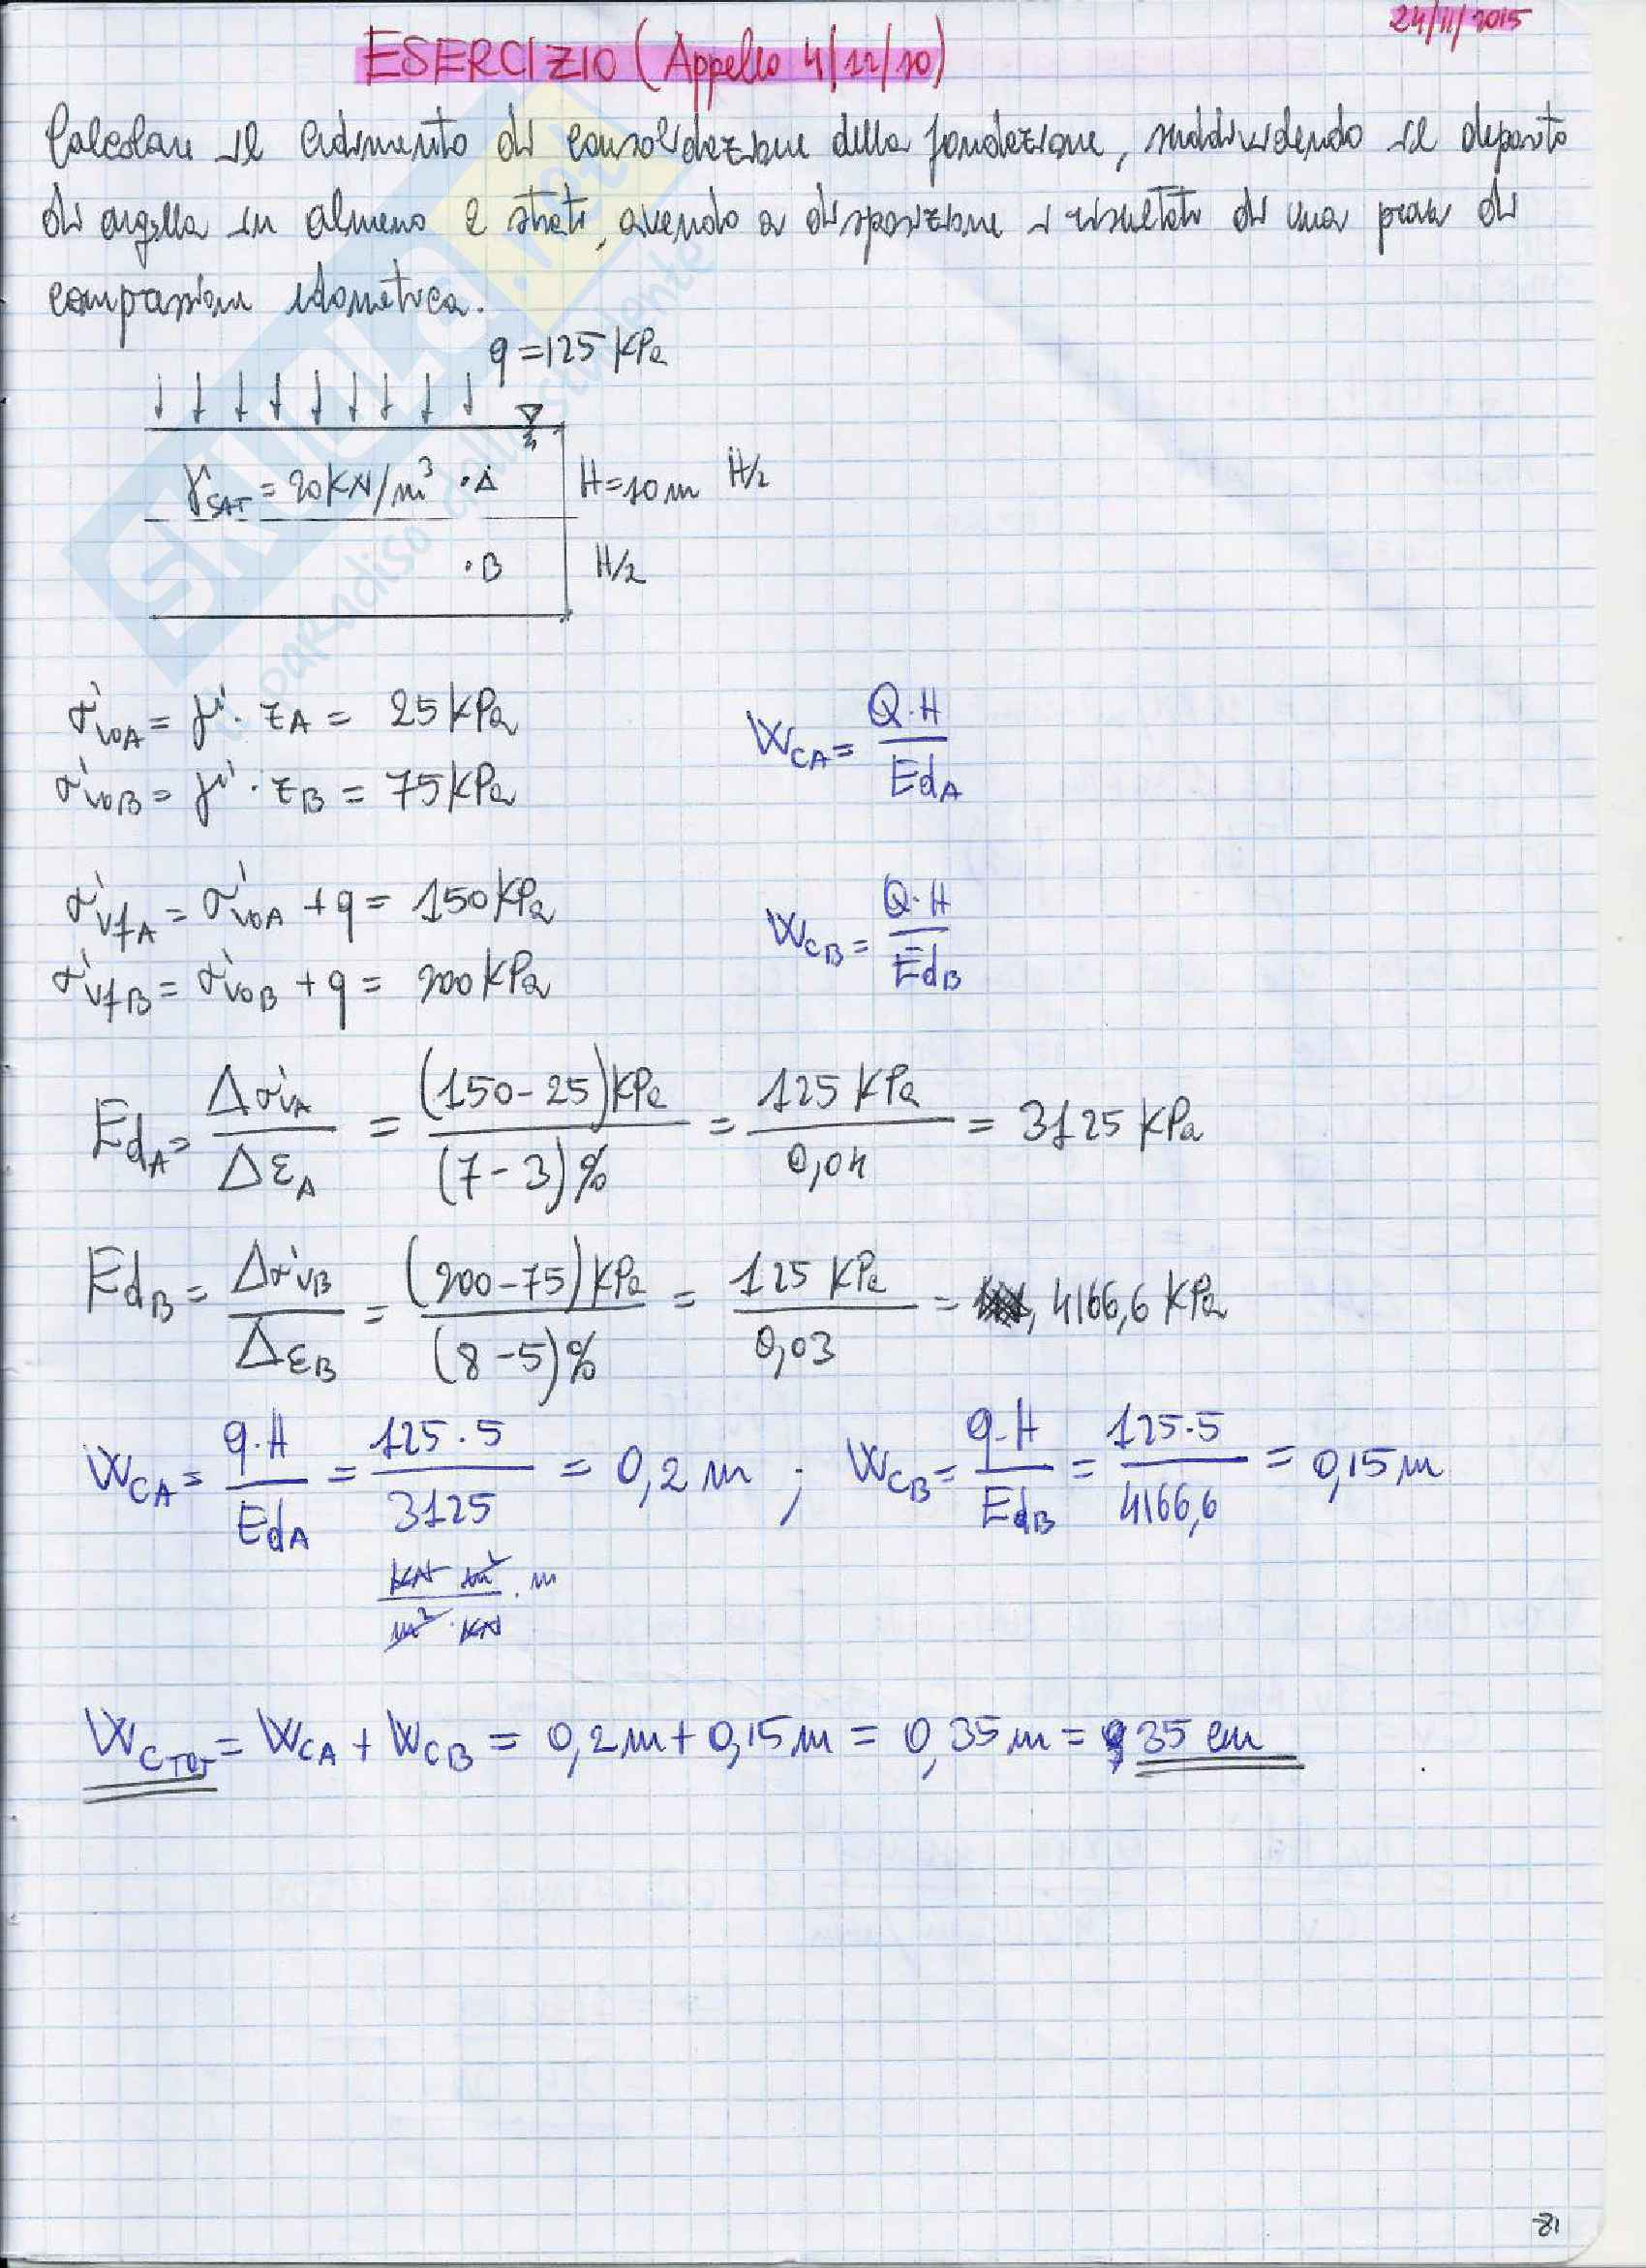 24/11/2015
ESERCIZIO (Appello 4/12/10)
Calcolare il cedimento di consolidazione della fondazione, suddividendo il deposito
di argilla in almeno 2 strati, avendo a disposizione i risultati di una prova di
compressione edometrica.
q = 125 KPa
γSAT = 20 KN/m³ · A H = 10 m H/2
· B H/2
σ'v0A = γ' · zA = 25 KPa WCA = Q·H / EdA
σ'v0B = γ' · zB = 75 KPa
σ'vfA = σ'v0A + q = 150 KPa WCB = Q·H / EdB
σ'vfB = σ'v0B + q = 200 KPa
EdA = Δσ'vA / ΔεA = (150-25) KPa / (7-3)% = 125 KPa / 0,04 = 3125 KPa
EdB = Δσ'vB / ΔεB = (200-75) KPa / (8-5)% = 125 KPa / 0,03 = 4166,6 KPa
WCA = q·H / EdA = 125·5 / 3125 = 0,2 m ; WCB = q·H / EdB = 125·5 / 4166,6 = 0,15 m
KN m² / m² · KN · m
WCTOT = WCA + WCB = 0,2 m + 0,15 m = 0,35 m = 35 cm
81
SKUOLA.net
paradiso dello studente